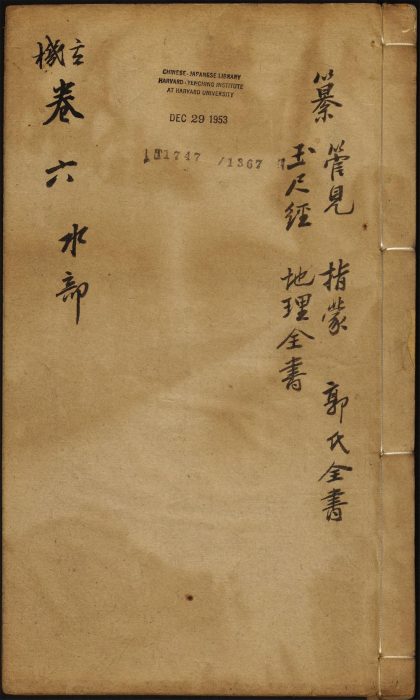 纂 管見 指蒙 郭氏全書
玉尺經 地理全書
CHINESE-JAPANESE LIBRARY
HARVARD-YENCHING INSTITUTE
AT HARVARD UNIVERSITY
DEC 29 1953
T1747 /1367
機
卷六 水部